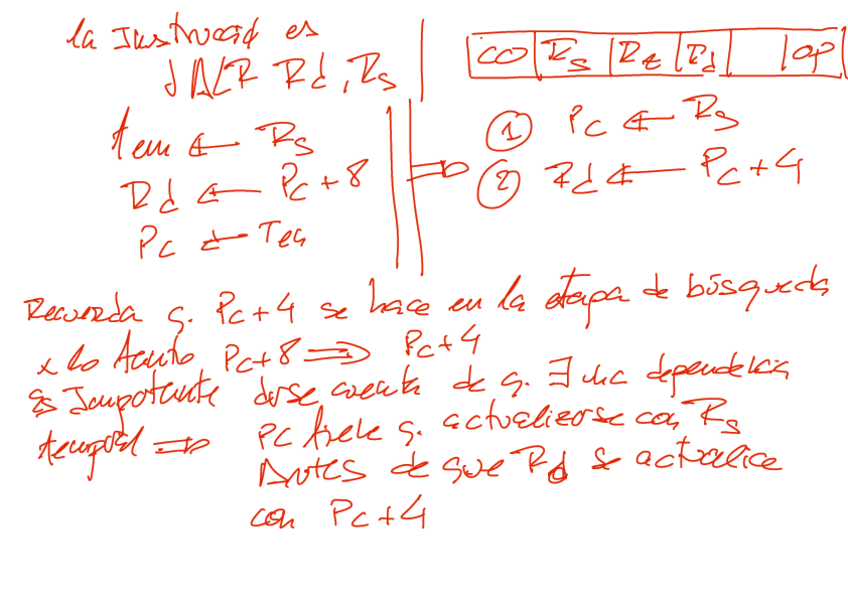 la Instrucció es
JALR Rd, Rs
CO Rs Rt Rd op
tem ← Rs
Rd ← Pc + 8
Pc ← Tem
⇒
① Pc ← Rs
② Rd ← Pc + 4
Recuerda q. Pc + 4 se hace en la etapa de búsqueda
x lo tanto Pc+8 ⇒ Pc+4
Es Importante darse cuenta de q. ∃ una dependencia
temporal ⇒ PC tiene q. actualizarse con Rs
Antes de que Rd se actualice
con Pc + 4